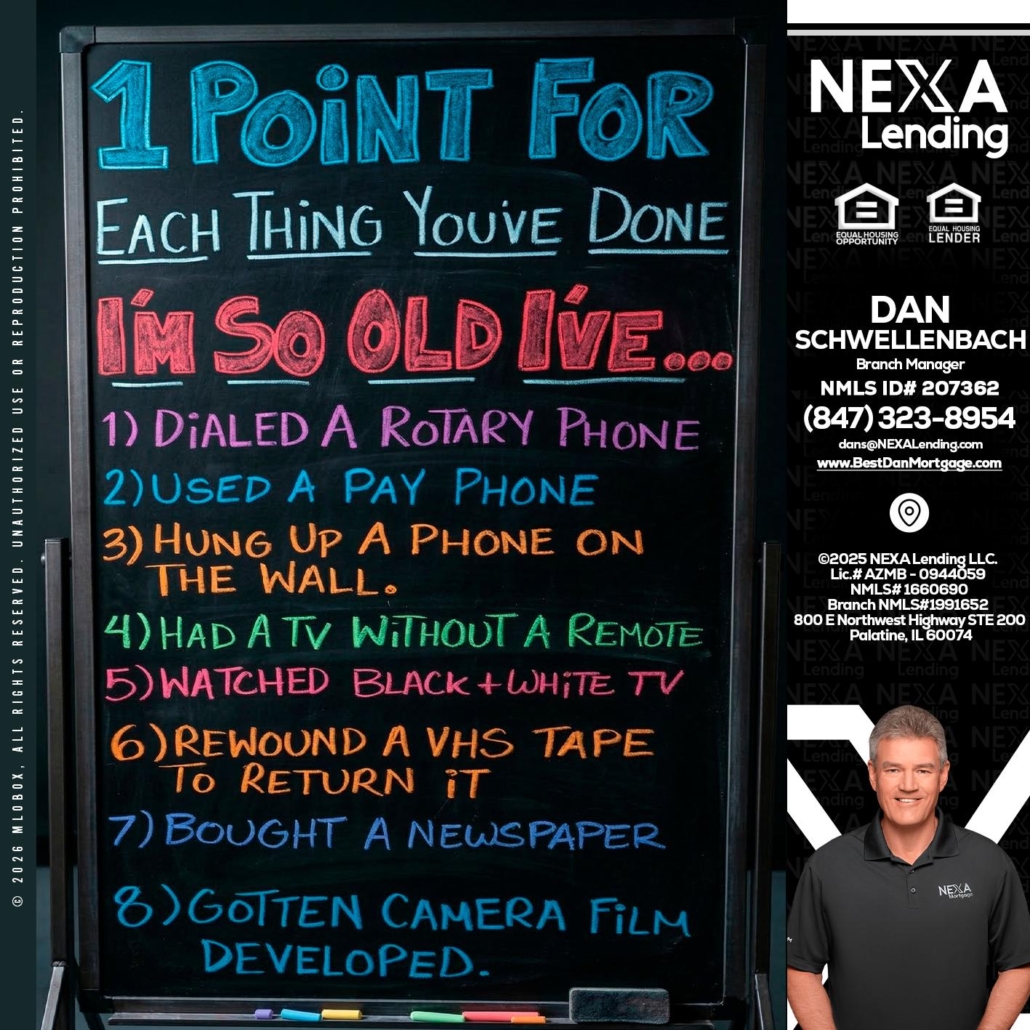 © 2026 MLOBOX, ALL RIGHTS RESERVED. UNAUTHORIZED USE OR REPRODUCTION PROHIBITED.
1 POiNT FOR
EACH THING YOU'VE DONE
I'M SO OLD I'VE...
1) DiALED A ROTARY PHONE
2) USED A PAY PHONE
3) HUNG UP A PHONE ON
THE WALL.
4) HAD A TV WiTHOUT A REMOTE
5) WATCHED BLACK + WHiTE TV
6) REWOUND A VHS TAPE
TO RETURN iT
7) BOUGHT A NEWSPAPER
8) GOTTEN CAMERA FiLM
DEVELOPED.
NEXA
Lending
EQUAL HOUSING
OPPORTUNITY
EQUAL HOUSING
LENDER
DAN
SCHWELLENBACH
Branch Manager
NMLS ID# 207362
(847) 323-8954
dans@NEXALending.com
www.BestDanMortgage.com
©2025 NEXA Lending LLC.
Lic.# AZMB - 0944059
NMLS# 1660690
Branch NMLS#1991652
800 E Northwest Highway STE 200
Palatine, IL 60074
NEXA
Mortgage